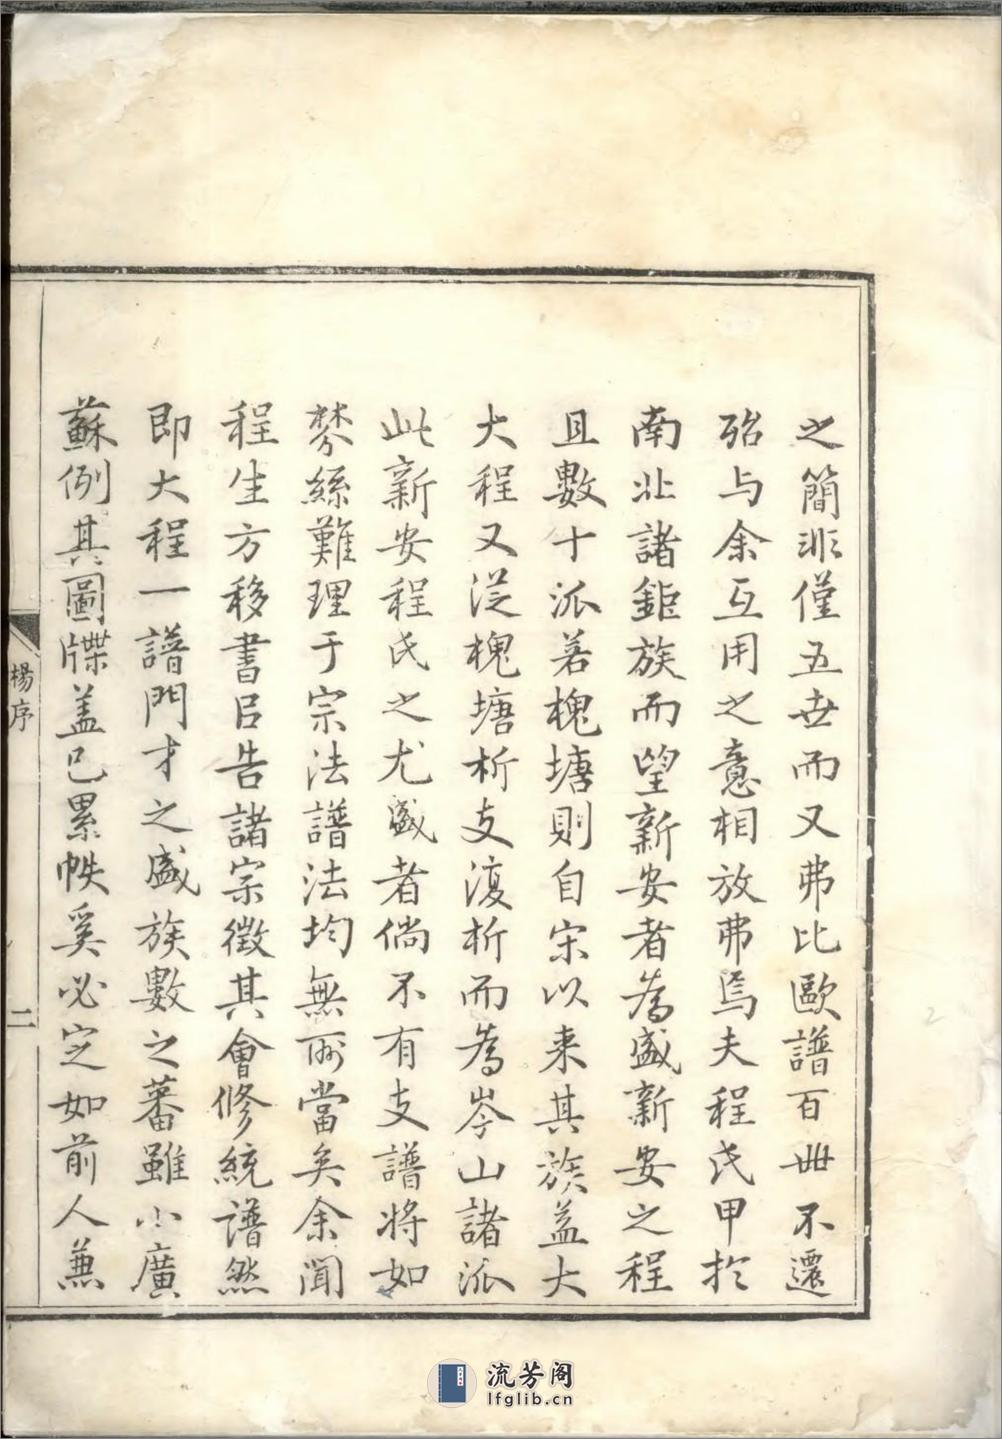 之簡非僅五世而又弗比歐譜百世不遷
殆与余互用之意相放弗焉夫程氏甲於
南北諸鉅族而望新安者為盛新安之程
且數十派若槐塘則自宋以来其族益大
大程又從槐塘析支復析而為岑山諸派
此新安程氏之尤盛者倘不有支譜將如
棼絲難理于宗法譜法均無所當矣余聞
程生方移書㠯告諸宗徵其會修統譜然
即大程一譜門才之盛族數之蕃雖小廣
蘇例其圖牒盖已累帙奚必定如前人兼
楊序
二
流芳阁
lfglib.cn